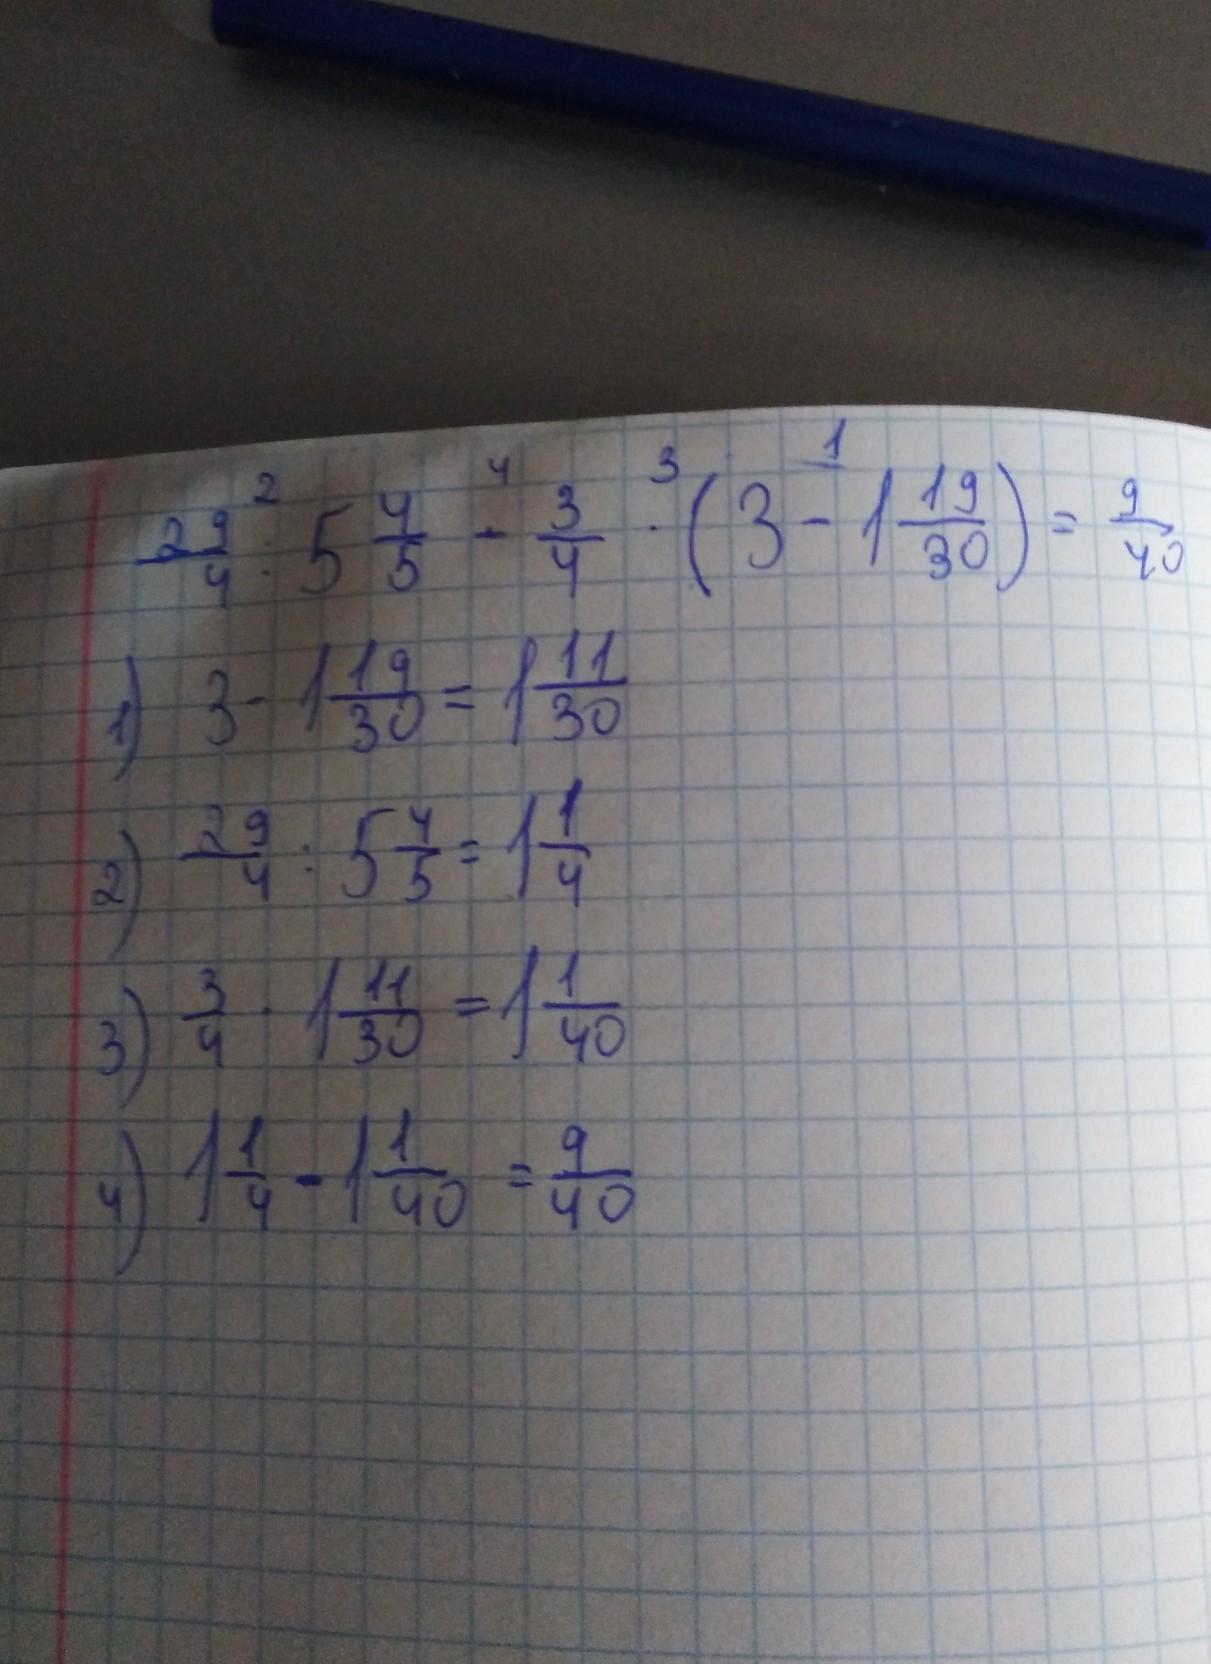 29/4 : 5 4/5 - 3/4 · (3 - 1 19/30) = 9/40
1) 3 - 1 19/30 = 1 11/30
2) 29/4 : 5 4/5 = 1 1/4
3) 3/4 · 1 11/30 = 1 1/40
4) 1 1/4 - 1 1/40 = 9/40